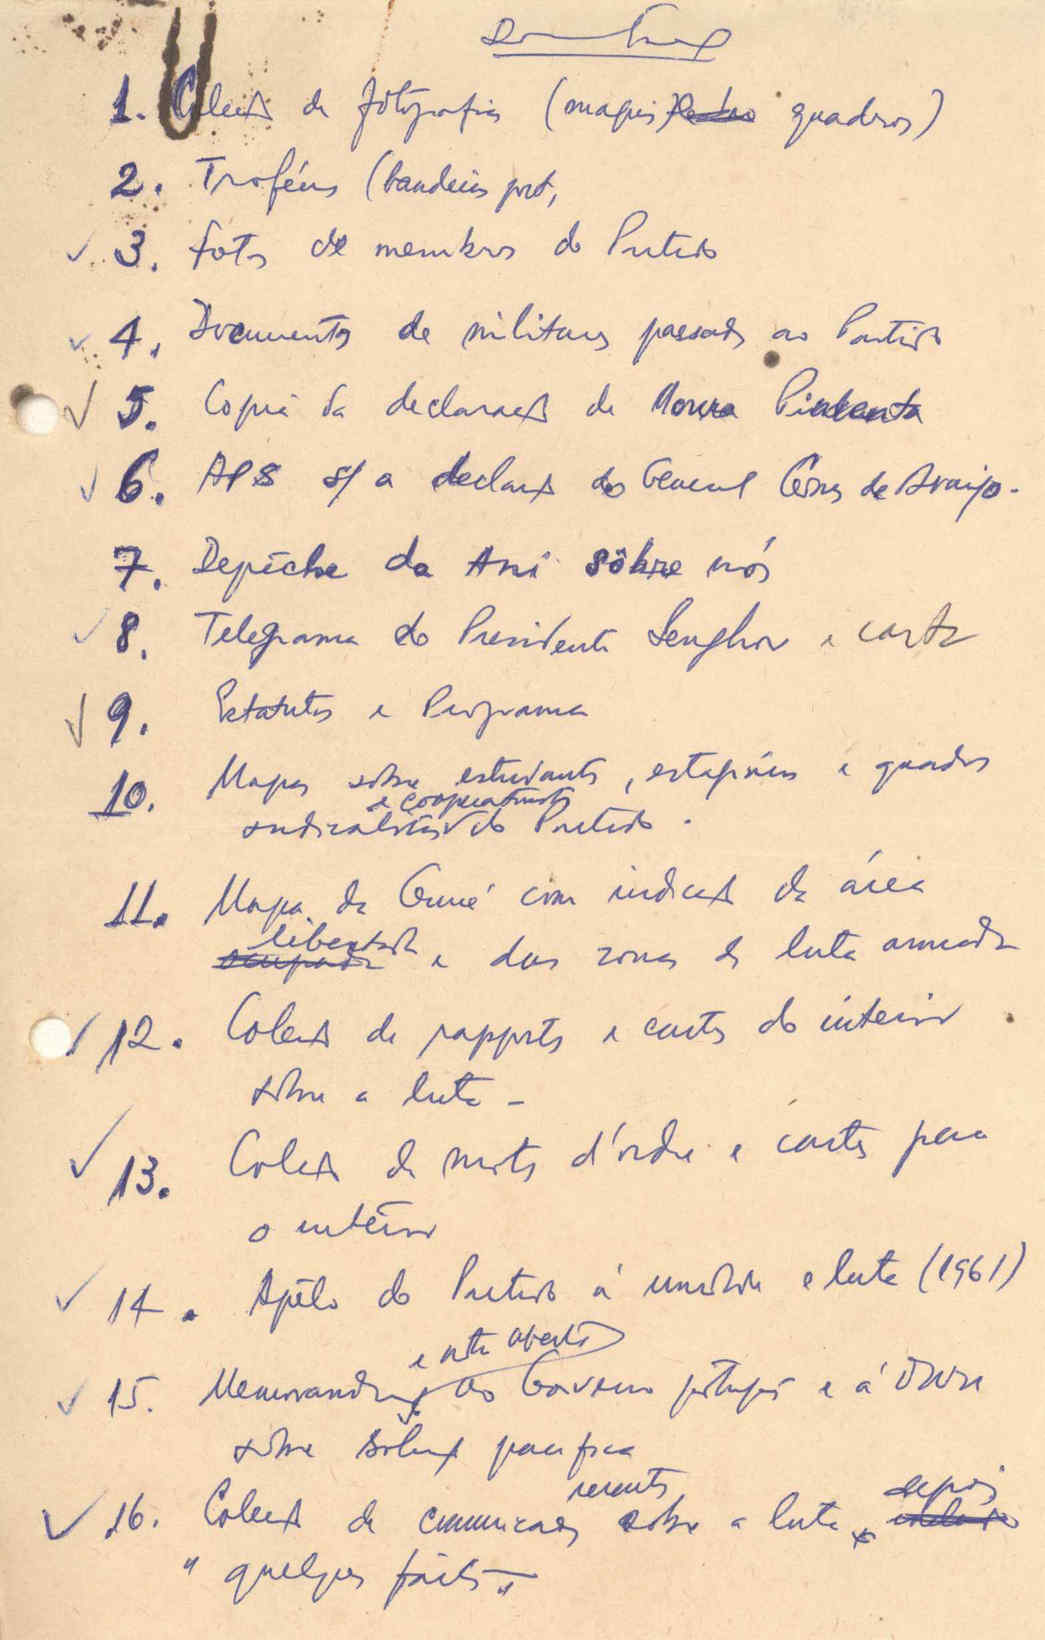 1. Colecção de fotografias (maquis) quadros)
2. Troféus (bandeira port,
3. Fotos de membros do Partido
4. Documentos de militares passados ao Partido
5. Copia da declaração de Moura Pimenta
6. APS s/ a declarç do General Gomes de Araujo.
7. Depêche da Ani sôbre nós
8. Telegrama do Presidente Senghor e carta
9. Estatutos e Programa
10. Mapas sôbre estudantes, estagiários e quadros
e cooperativistas
sindicalistas do Partido.
11. Mapa da Guiné com indicação da área
libertada
ocupada e das zonas de luta armada
12. Colecção de rapports e cartas do interior
sôbre a luta -
13. Colecção de mots d'ordre e cartas para
o interior
14. Apêlo do Partido à unidade e luta (1961)
e nota aberta
15. Memorandum ao Governo português e à ONU
sôbre solução pacífica
recentes depois
16. Colecção de comunicados sobre a luta,
"quelques faits"